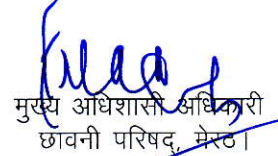 मुख्य अधिशासी अधिकारी
छावनी परिषद्, मेरठ।